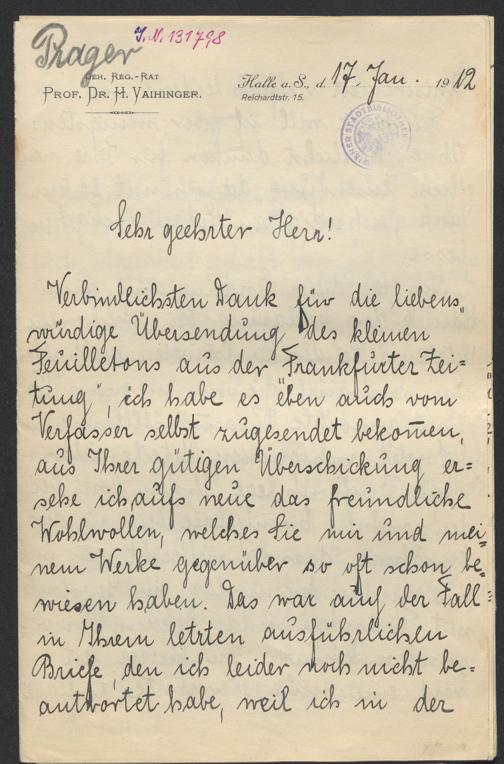 Prager
J.N. 131798
GEH. REG.-RAT
PROF. DR. H. VAIHINGER.
Halle a. S., d. 17. Jan. 1912
Reichardtstr. 15.
WIENER STADTBIBLIOTHEK
Sehr geehrter Herr!
Verbindlichsten Dank für die liebens„
würdige Übersendung des kleinen
Feuilletons aus der „Frankfurter Zei=
tung“, ich habe es eben auch vom
Verfasser selbst zugesendet bekom̅en,
aus Ihrer gütigen Überschickung er=
sehe ich aufs neue das freundliche
Wohlwollen, welches Sie mir und mei„
nem Werke gegenüber so oft schon be„
wiesen haben. Das war auch der Fall
in Ihrem letzten ausführlichen
Briefe, den ich leider noch nicht be=
antwortet habe, weil ich in der